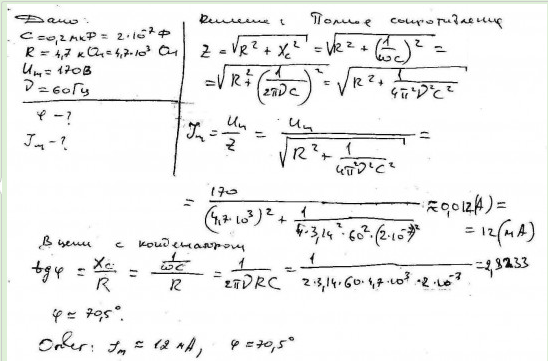 Дано:
C = 0,2 мкФ = 2·10⁻⁷ Ф
R = 4,7 кОм = 4,7·10³ Ом
Uₘ = 170 В
ν = 60 Гц
φ - ?
Jₘ - ?
Решение: Полное сопротивление
Z = √(R² + X_c²) = √(R² + (1/ωC)²) =
= √(R² + (1/2πνC)²) = √(R² + 1/4π²ν²C²)
Jₘ = Uₘ/Z = Uₘ/√(R² + 1/4π²ν²C²) =
= 170/((4,7·10³)² + 1/√(4·3,14²·60²·(2·10⁻⁷)²)) ≈ 0,012 (А) =
= 12 (мА)
В цепи с конденсатором
tgφ = X_c/R = (1/ωC)/R = 1/2πνRC = 1/(2·3,14·60·4,7·10³·2·10⁻³) = 2,8233
φ ≈ 70,5°.
Ответ: Jₘ ≈ 12 мА, φ ≈ 70,5°